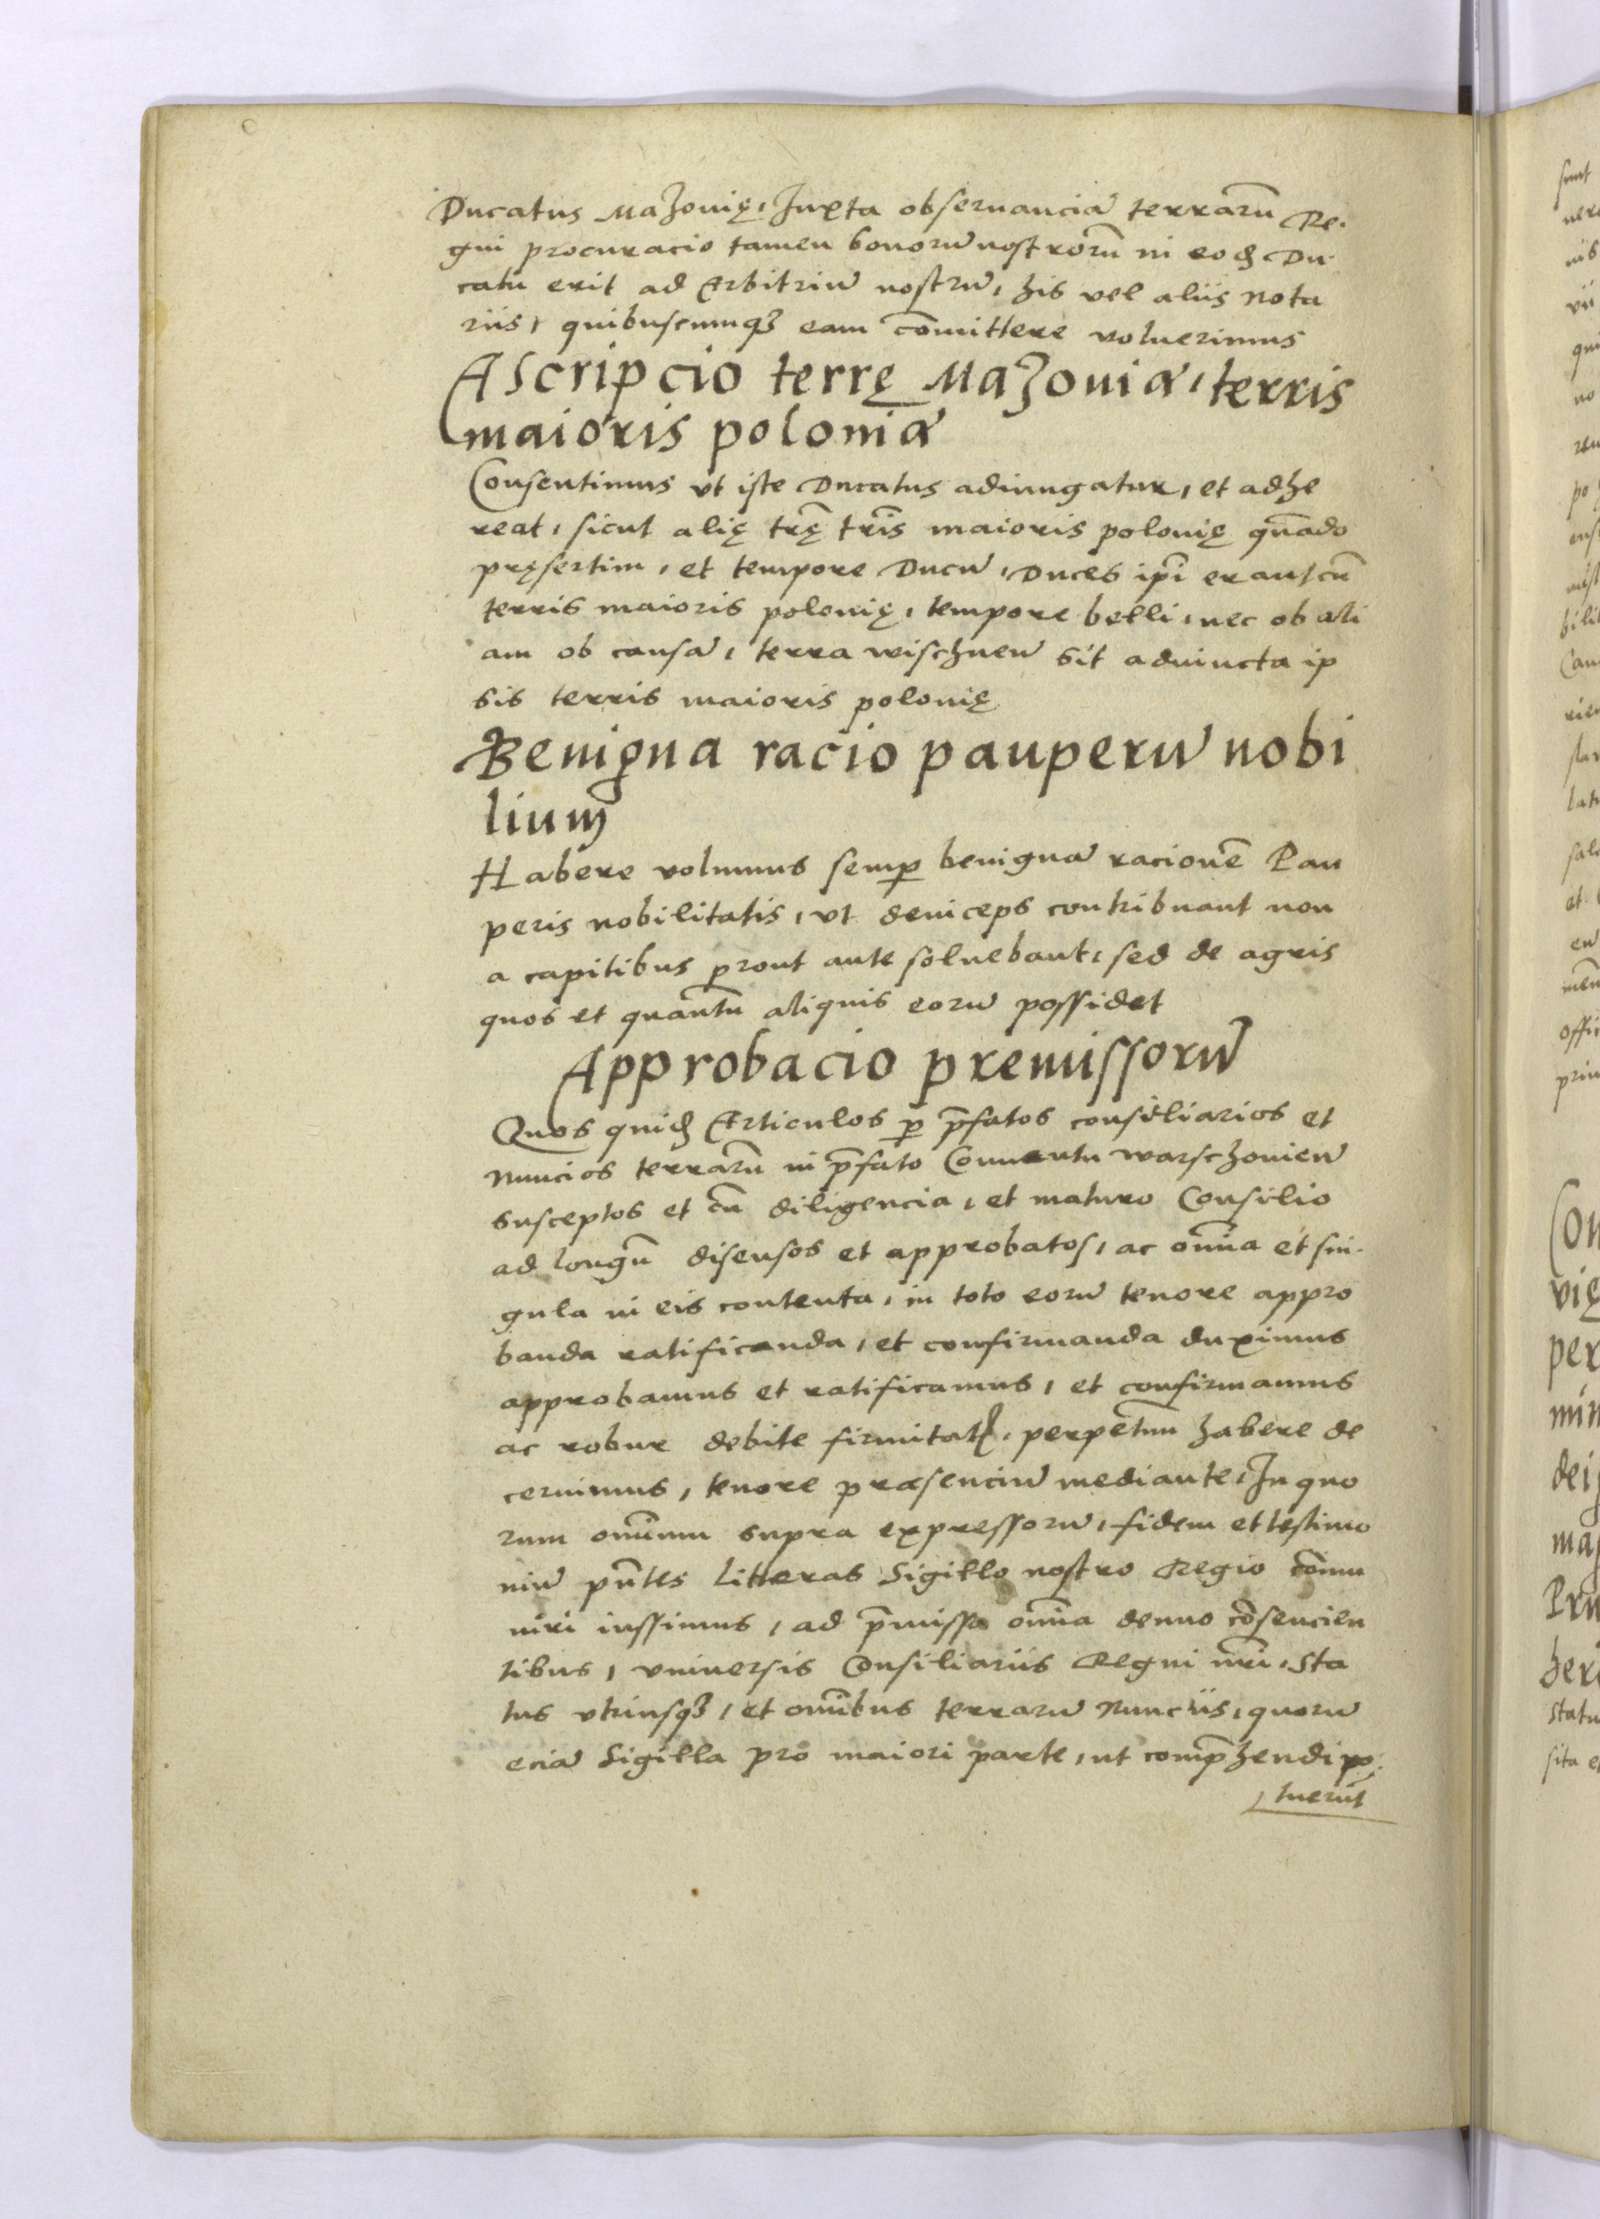 Ducatus Mazovię, Juxta observanciā terrarū Re.
gni procuracio tamen bonorū nostrorū in eodē Du
catu erit ad Arbitriū nostrū, his vel aliis nota
riis, quibuscumqꝫ eam cōmittere voluerimus
Ascripcio terrę Mazoviæ, terris
maioris poloniæ
Consentimus vt iste Ducatus adiungatur, et adhe
reat, sicut alię trę̄ tr̄is maioris polonię qn̄ado
pręsertim, et tempore Ducū, Duces ip̄i erant cū
terris maioris polonię, tempore belli, nec ob ali
am ob causā, terra wischneñ sit advincta ip
sis terris maioris polonię
Benigna racio pauperū nobi
lium
Habere volumus semꝑ benignā racionē Pau
peris nobilitatis, vt deniceps contribuant non
a capitibus prout ante soluebant, sed de agris
quos et quantū aliquis eorū possidet
Approbacio premissorū
Quos quidē Articulos ꝑ p̄fatos consiliarios et
nuncios terrarū in p̄fato Conuentu warschovieñ
susceptos et cū diligencia, et maturo Consilio
ad longū disensos et approbatos, ac om̄ia et sin.
gula in eis contenta, in toto eorū tenore appro
banda ratificanda, et confirmanda duximus
approbamus et ratificamus, et confirmamus
ac robur debite firmitatꝭ, perpetuū habere de
cernimus, tenore præsenciū mediante, In quo
rum omnium supra expressorū, fidem et testimo
niū pn̄tes litteras Sigillo nostro Regio cōmu
niri iussimus, ad p̄missa om̄ia denuo cōsencien
tibus, vniuersis Consiliariis Regni nr̄i, sta
tus vtriusqꝫ, et om̄ibus terrarū Nunciis, quorū
eciā Sigilla pro maiori parte, ut comp̄hendi po.
tuerūt